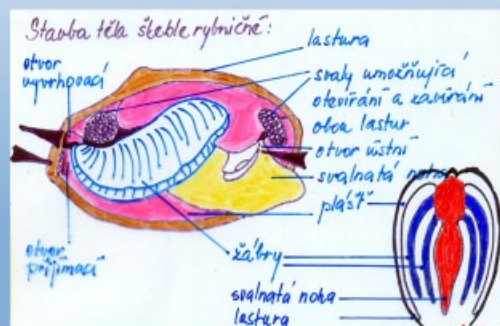 Stavba těla škeble rybničné:
otvor
vyvrhovací
lastura
svaly umožňující
otevírání a zavírání
obou lastur
otvor ústní
svalnatá noha
plášť
otvor
přijímací
žábry
svalnatá noha
lastura